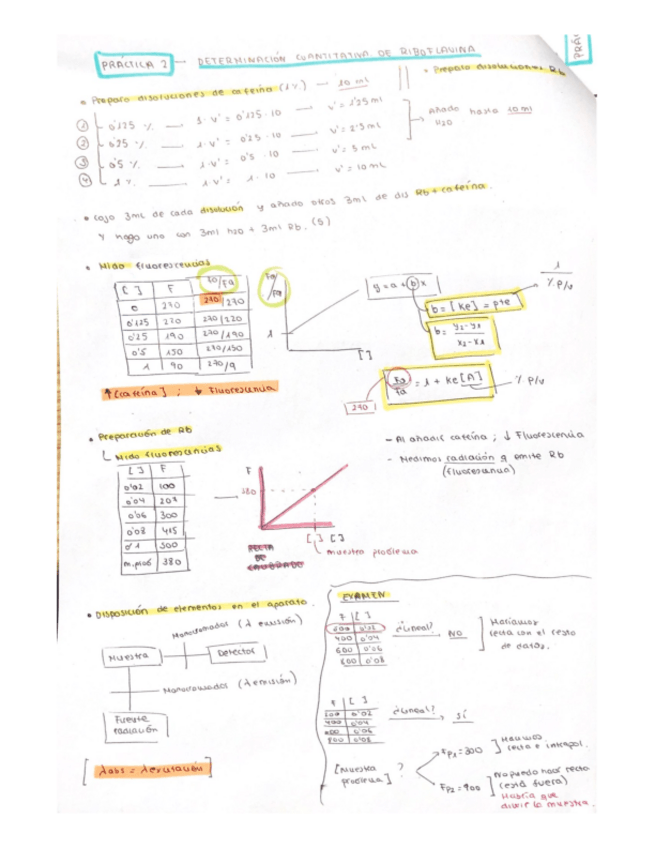 PRÁCTICA 2 — DETERMINACIÓN CUANTITATIVA DE RIBOFLAVINA
PRÁ
• Preparo disoluciones de cafeína (1%) — 10 ml
• Preparo disoluciones Rb
① 0'125 % — 1·V' = 0'125·10 — V' = 1'25 ml
② 0'25 % — 1·V' = 0'25·10 — V' = 2'5 ml
③ 0'5 % — 1·V' = 0'5·10 — V' = 5 ml
④ 1 % — 1·V' = 1·10 — V' = 10 ml
Añado hasta 10 ml
H2O
• Cojo 3mL de cada disolución y añado otros 3ml de dis Rb + cafeína.
Y hago uno con 3ml H2O + 3ml Rb. (5)
• Mido fluorescencias
[ ] F Fo/Fa
0 270 270/270
0'125 220 270/220
0'25 190 270/190
0'5 150 270/150
1 90 270/9
Fo/Fa
1
[ ]
y = a + b x
b = [Ke] = pte
1 / % p/v
b = y2 - y1 / x2 - x1
Fo/Fa = 1 + Ke [A]
% p/v
270
↑ [cafeína] ; ↓ Fluorescencia
• Preparación de Rb
Mido fluorescencias
[ ] F
0'02 100
0'04 207
0'06 300
0'08 415
0'1 500
m.prob 380
F
380
[ ] [ ]
muestra problema
RECTA
DE
CALIBRADO
- Al añadir cafeína ; ↓ Fluorescencia
- Medimos radiación q emite Rb
(fluorescencia)
• Disposición de elementos en el aparato.
Monocromados (λ emisión)
Muestra
Detector
Monocromados (λ emisión)
Fuente
radiación
[ λabs = λexcitación ]
EXAMEN
F [ ]
600 0'02
400 0'04
600 0'06
800 0'08
¿Lineal? NO
Haríamos
recta con el resto
de datos.
F [ ]
200 0'02
400 0'04
600 0'06
800 0'08
¿Lineal? SÍ
[Muestra
problema] ?
Fp1 = 300
Hacemos
recta e interpol.
Fp2 = 900
No puedo hacer recta
(está fuera)
Habría que
diluir la muestra.